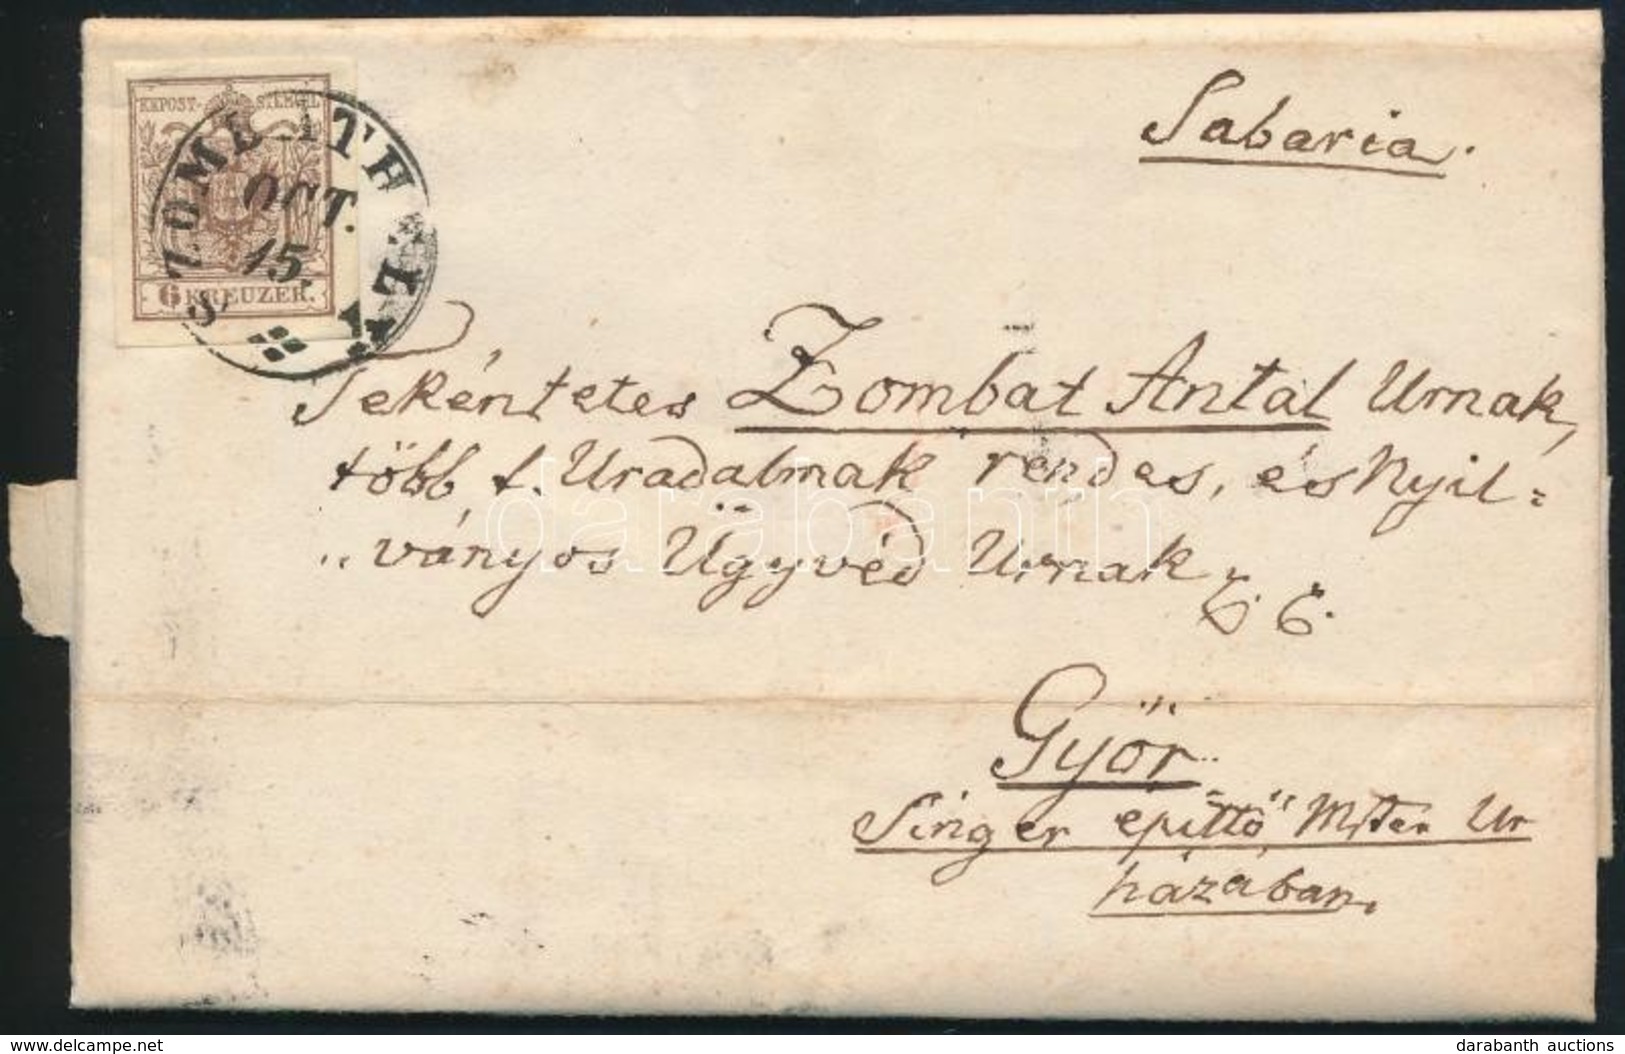 Sabaria.
KKPOST-STEMPEL
6 KREUZER.
SZOMBATHELY
OCT.
15.
Tekéntetes Zombat Antal Urnak,
több t. Uradalmak rendes, és Nyil=
„ványos Ügyvéd Urnak
Győr
Singer építtő Mster Ur
házában.
darabanth
delcampe.net
darabanth auctions